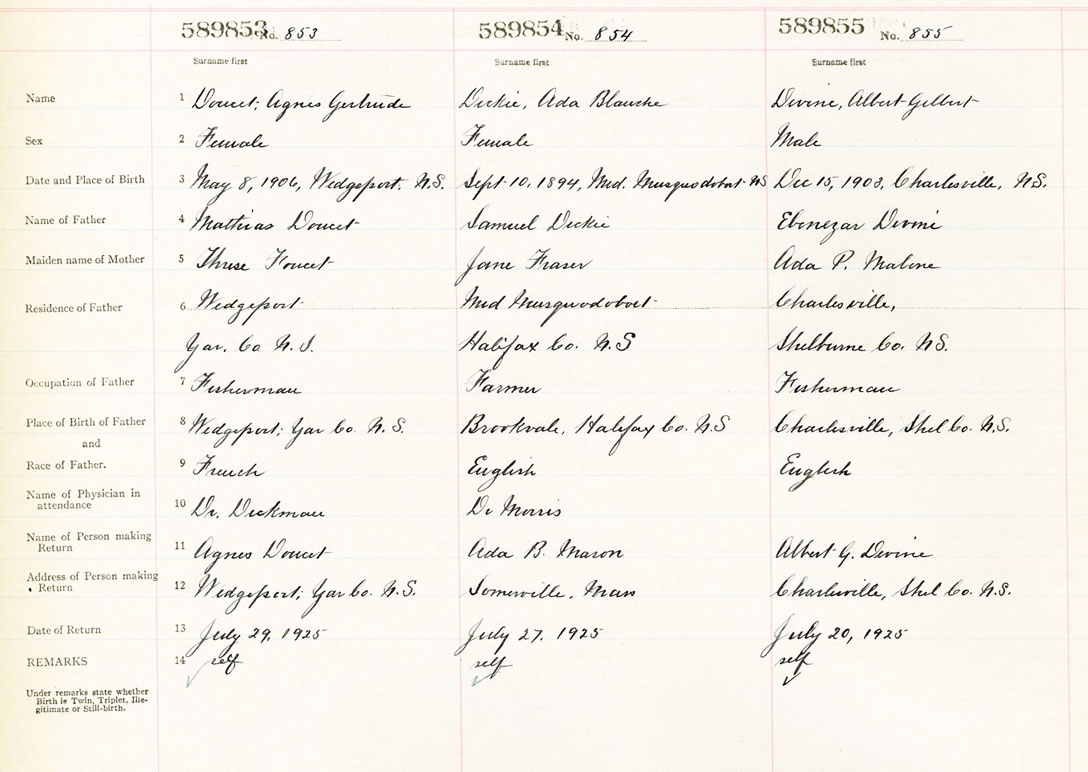 589853 No. 853 589854 No. 854 589855 No. 855
Surname first Surname first Surname first
Name 1 Doucet, Agnes Gertrude Dickie, Ada Blanche Divine, Albert Gilbert
Sex 2 Female Female Male
Date and Place of Birth 3 May 8, 1906, Wedgeport. N.S. Sept 10, 1894, Mid. Musquodoboit NS Dec 15, 1903, Charlesville, NS.
Name of Father 4 Mathias Doucet Samuel Dickie Ebenezar Divine
Maiden name of Mother 5 Jane Fraser Ada P. Malone
Residence of Father 6 Wedgeport Mid Musquodoboit Charlesville,
Yar. Co N.S. Halifax Co. N.S Shelburne Co. NS.
Occupation of Father 7 Fisherman Farmer Fisherman
Place of Birth of Father 8 Wedgeport, Yar Co. N.S. Brookvale, Halifax Co. N.S Charlesville, Shel Co. N.S.
and
Race of Father. 9 French English English
Name of Physician in
attendance 10 Dr. Dickman Dr Morris
Name of Person making
Return 11 Agnes Doucet Ada B. Mason Albert G. Divine
Address of Person making
Return 12 Wedgeport, Yar Co. N.S. Somerville, Mass Charlesville, Shel Co. N.S.
Date of Return 13 July 29, 1925 July 27, 1925 July 20, 1925
REMARKS 14 self self self
Under remarks state whether
Birth is Twin, Triplet, Ille-
gitimate or Still-birth.